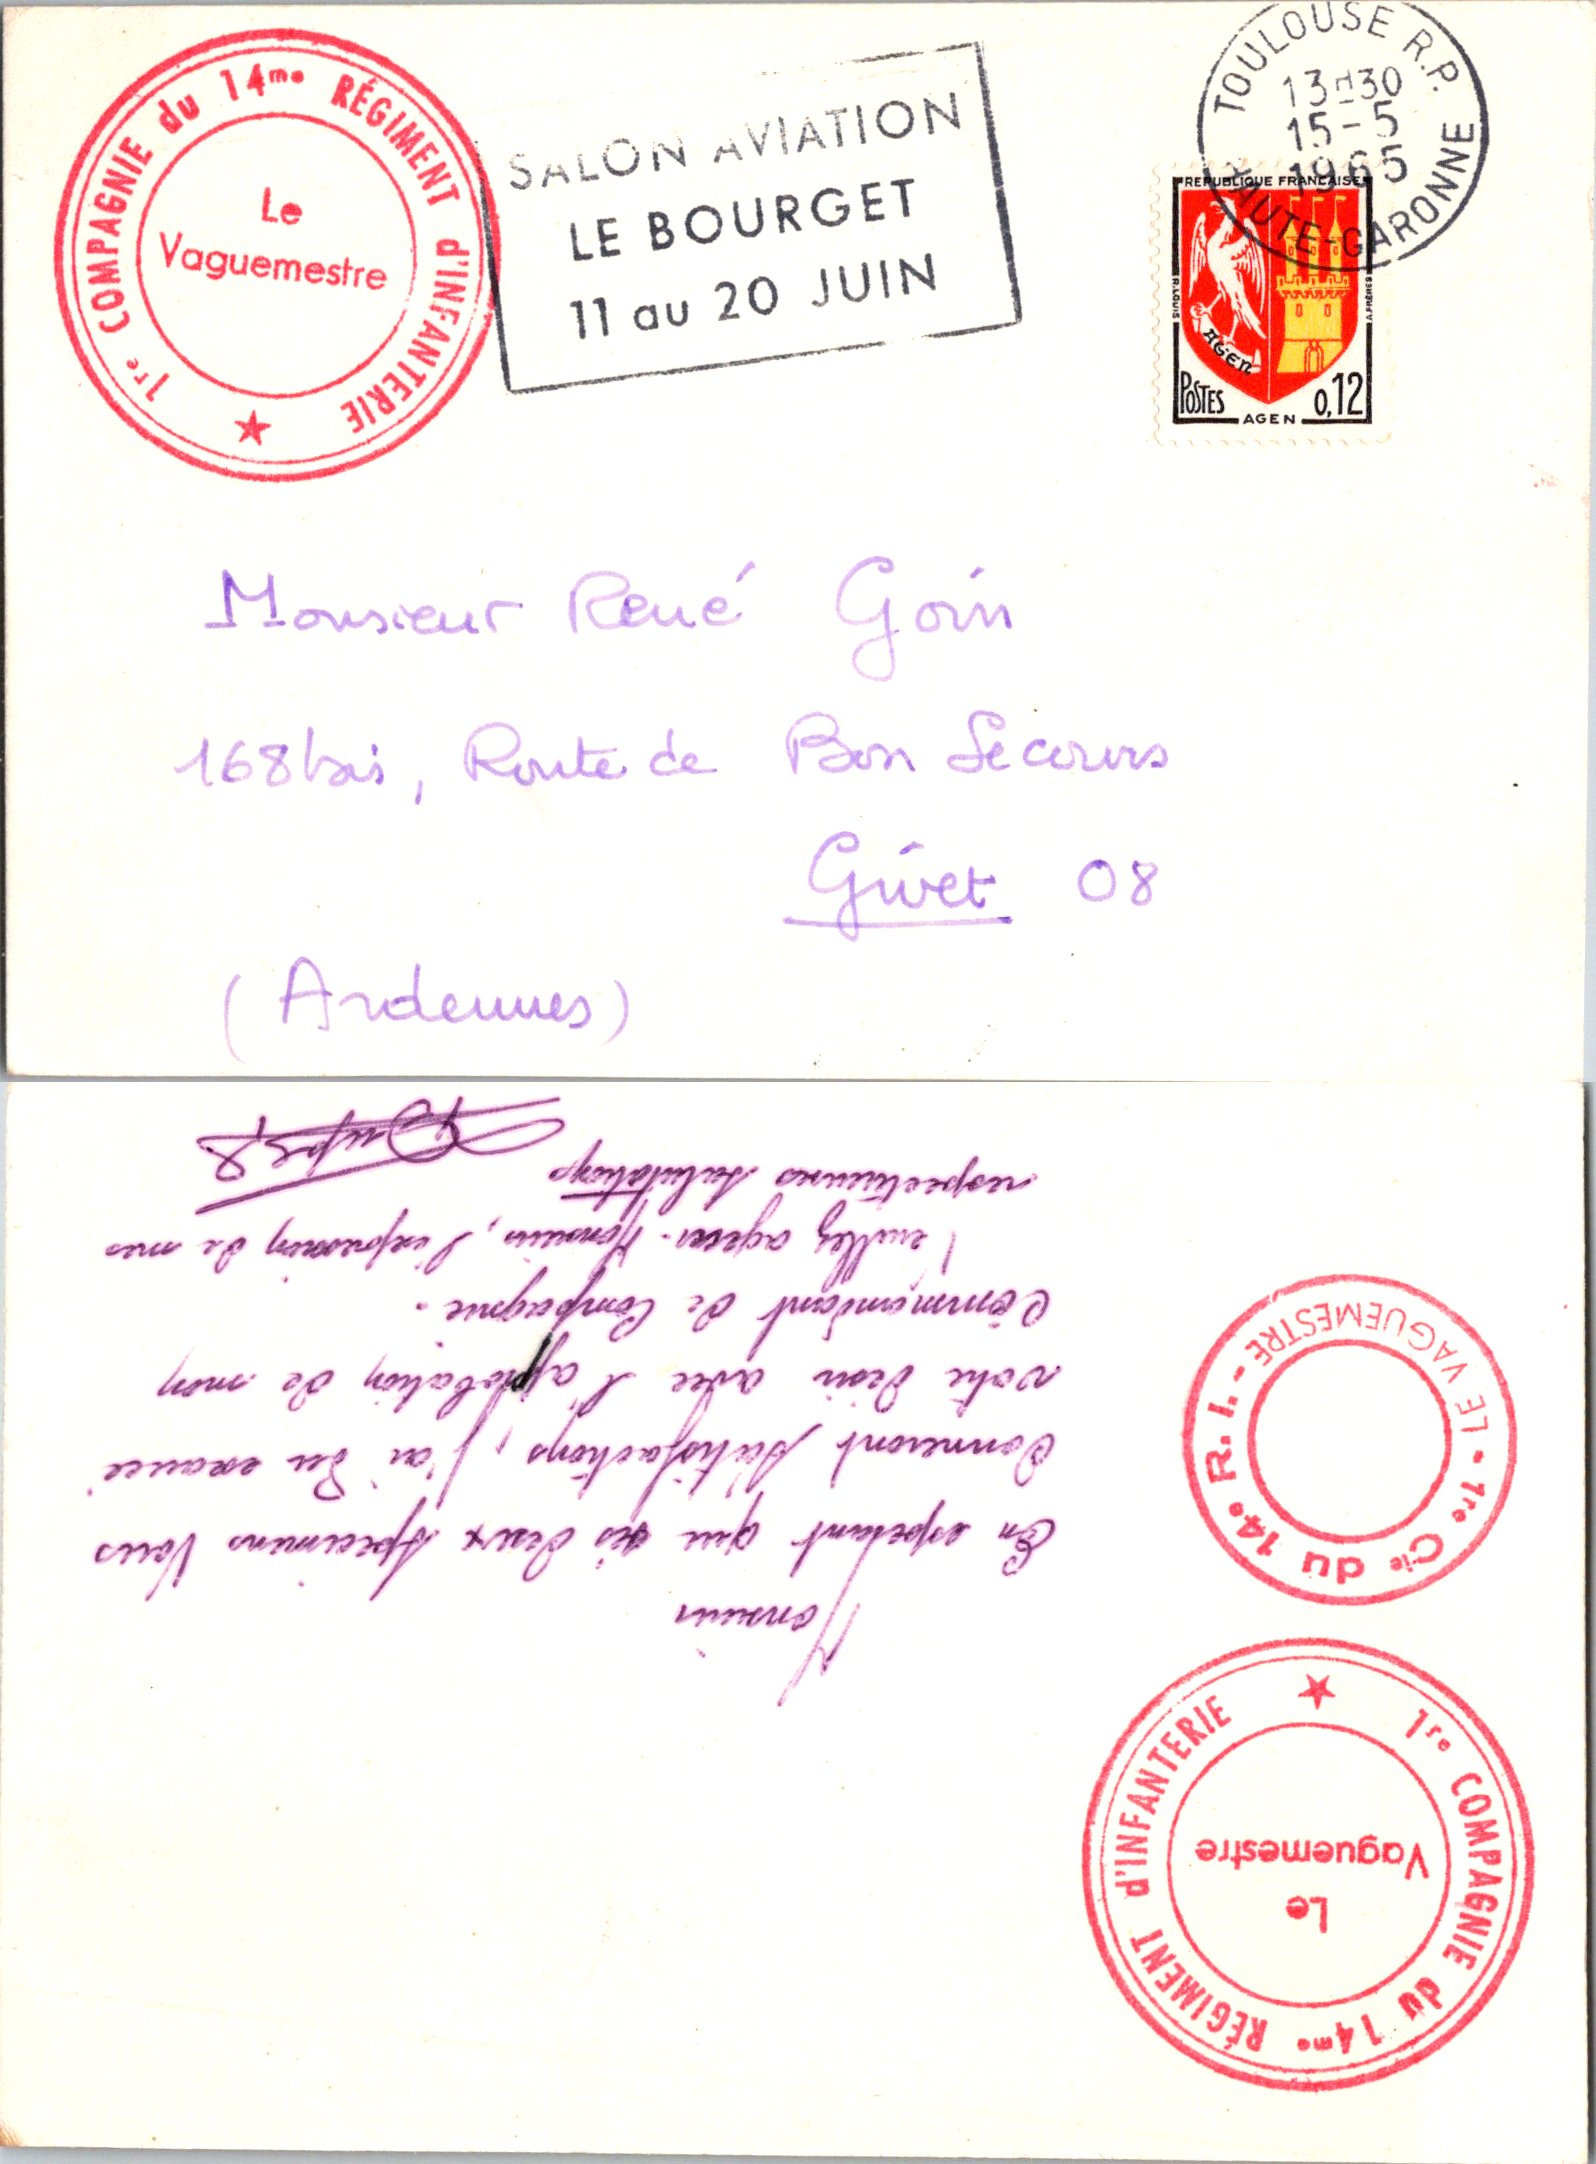 1re COMPAGNIE du 14me RÉGIMENT d'INFANTERIE
Le
Vaguemestre
SALON AVIATION
LE BOURGET
11 au 20 JUIN
TOULOUSE R.P.
13H30
15-5
1965
HAUTE-GARONNE
REPUBLIQUE FRANCAISE
R.LOUIS
A.FRÈRES
AGEN
POSTES
AGEN
0,12
Monsieur René Goin
168 bis, Route de Bon Secours
Givet 08
(Ardennes)
Monsieur
En espérant que ces deux spécimens Vous
donneront satisfactions, j'ai du exaucé
votre désir avec l'aprobation de mon
Commandant de Compagnie.
Veuillez agréer Monsieur, l'expression de mes
respectueuses salutations
1re Cie du 14e R.I. - LE VAGUEMESTRE
1re COMPAGNIE du 14me RÉGIMENT d'INFANTERIE
Le
Vaguemestre